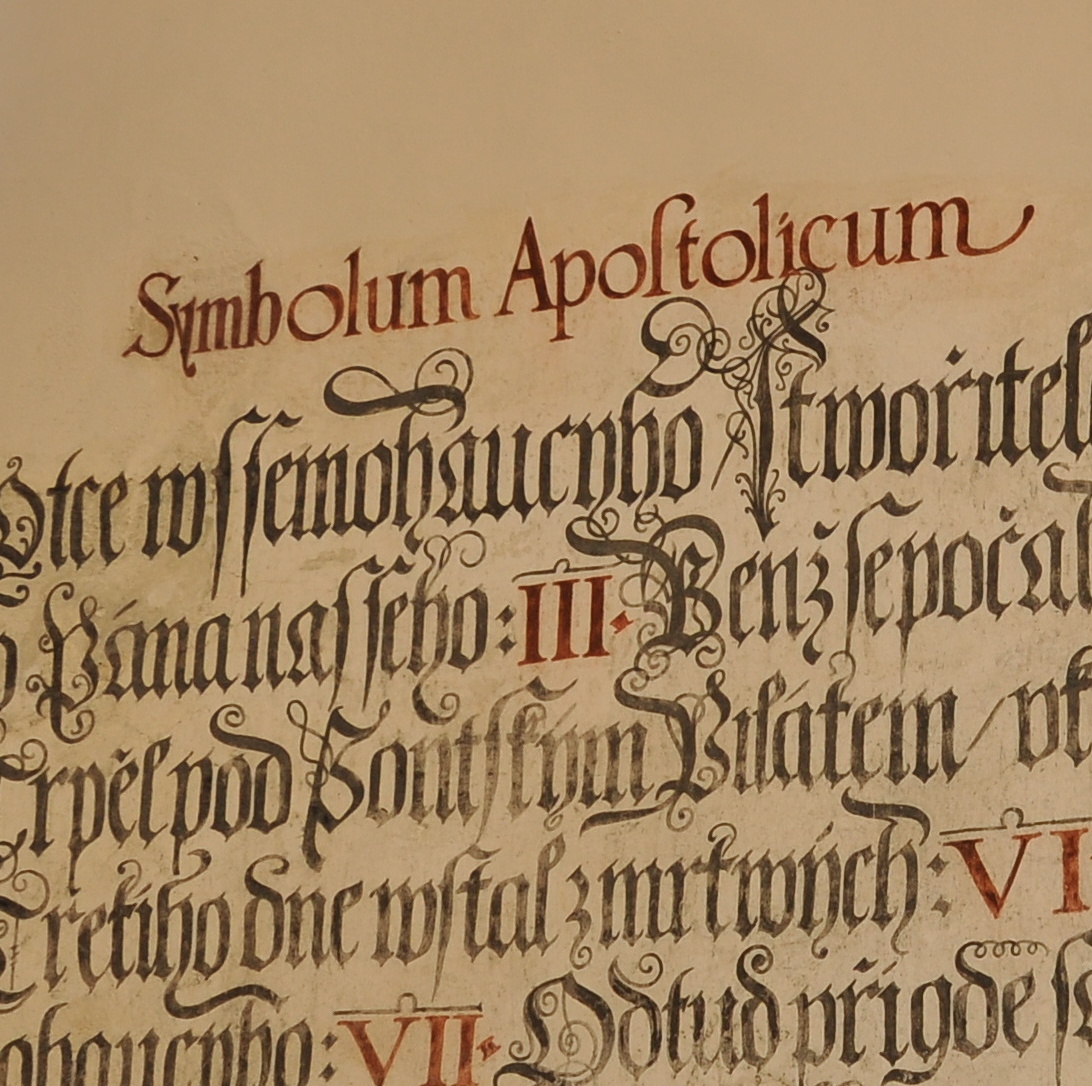 Symbolum Apoſtolicum
Otce wſſemohaucyho / Stwořitel
Pána naſſeho: III. Genž ſe počal
Trpěl pod Pontſkým Pilátem /
Třetiho dne wſtal z mrtwých: VI
ohaucyho: VII. Odtud přigde